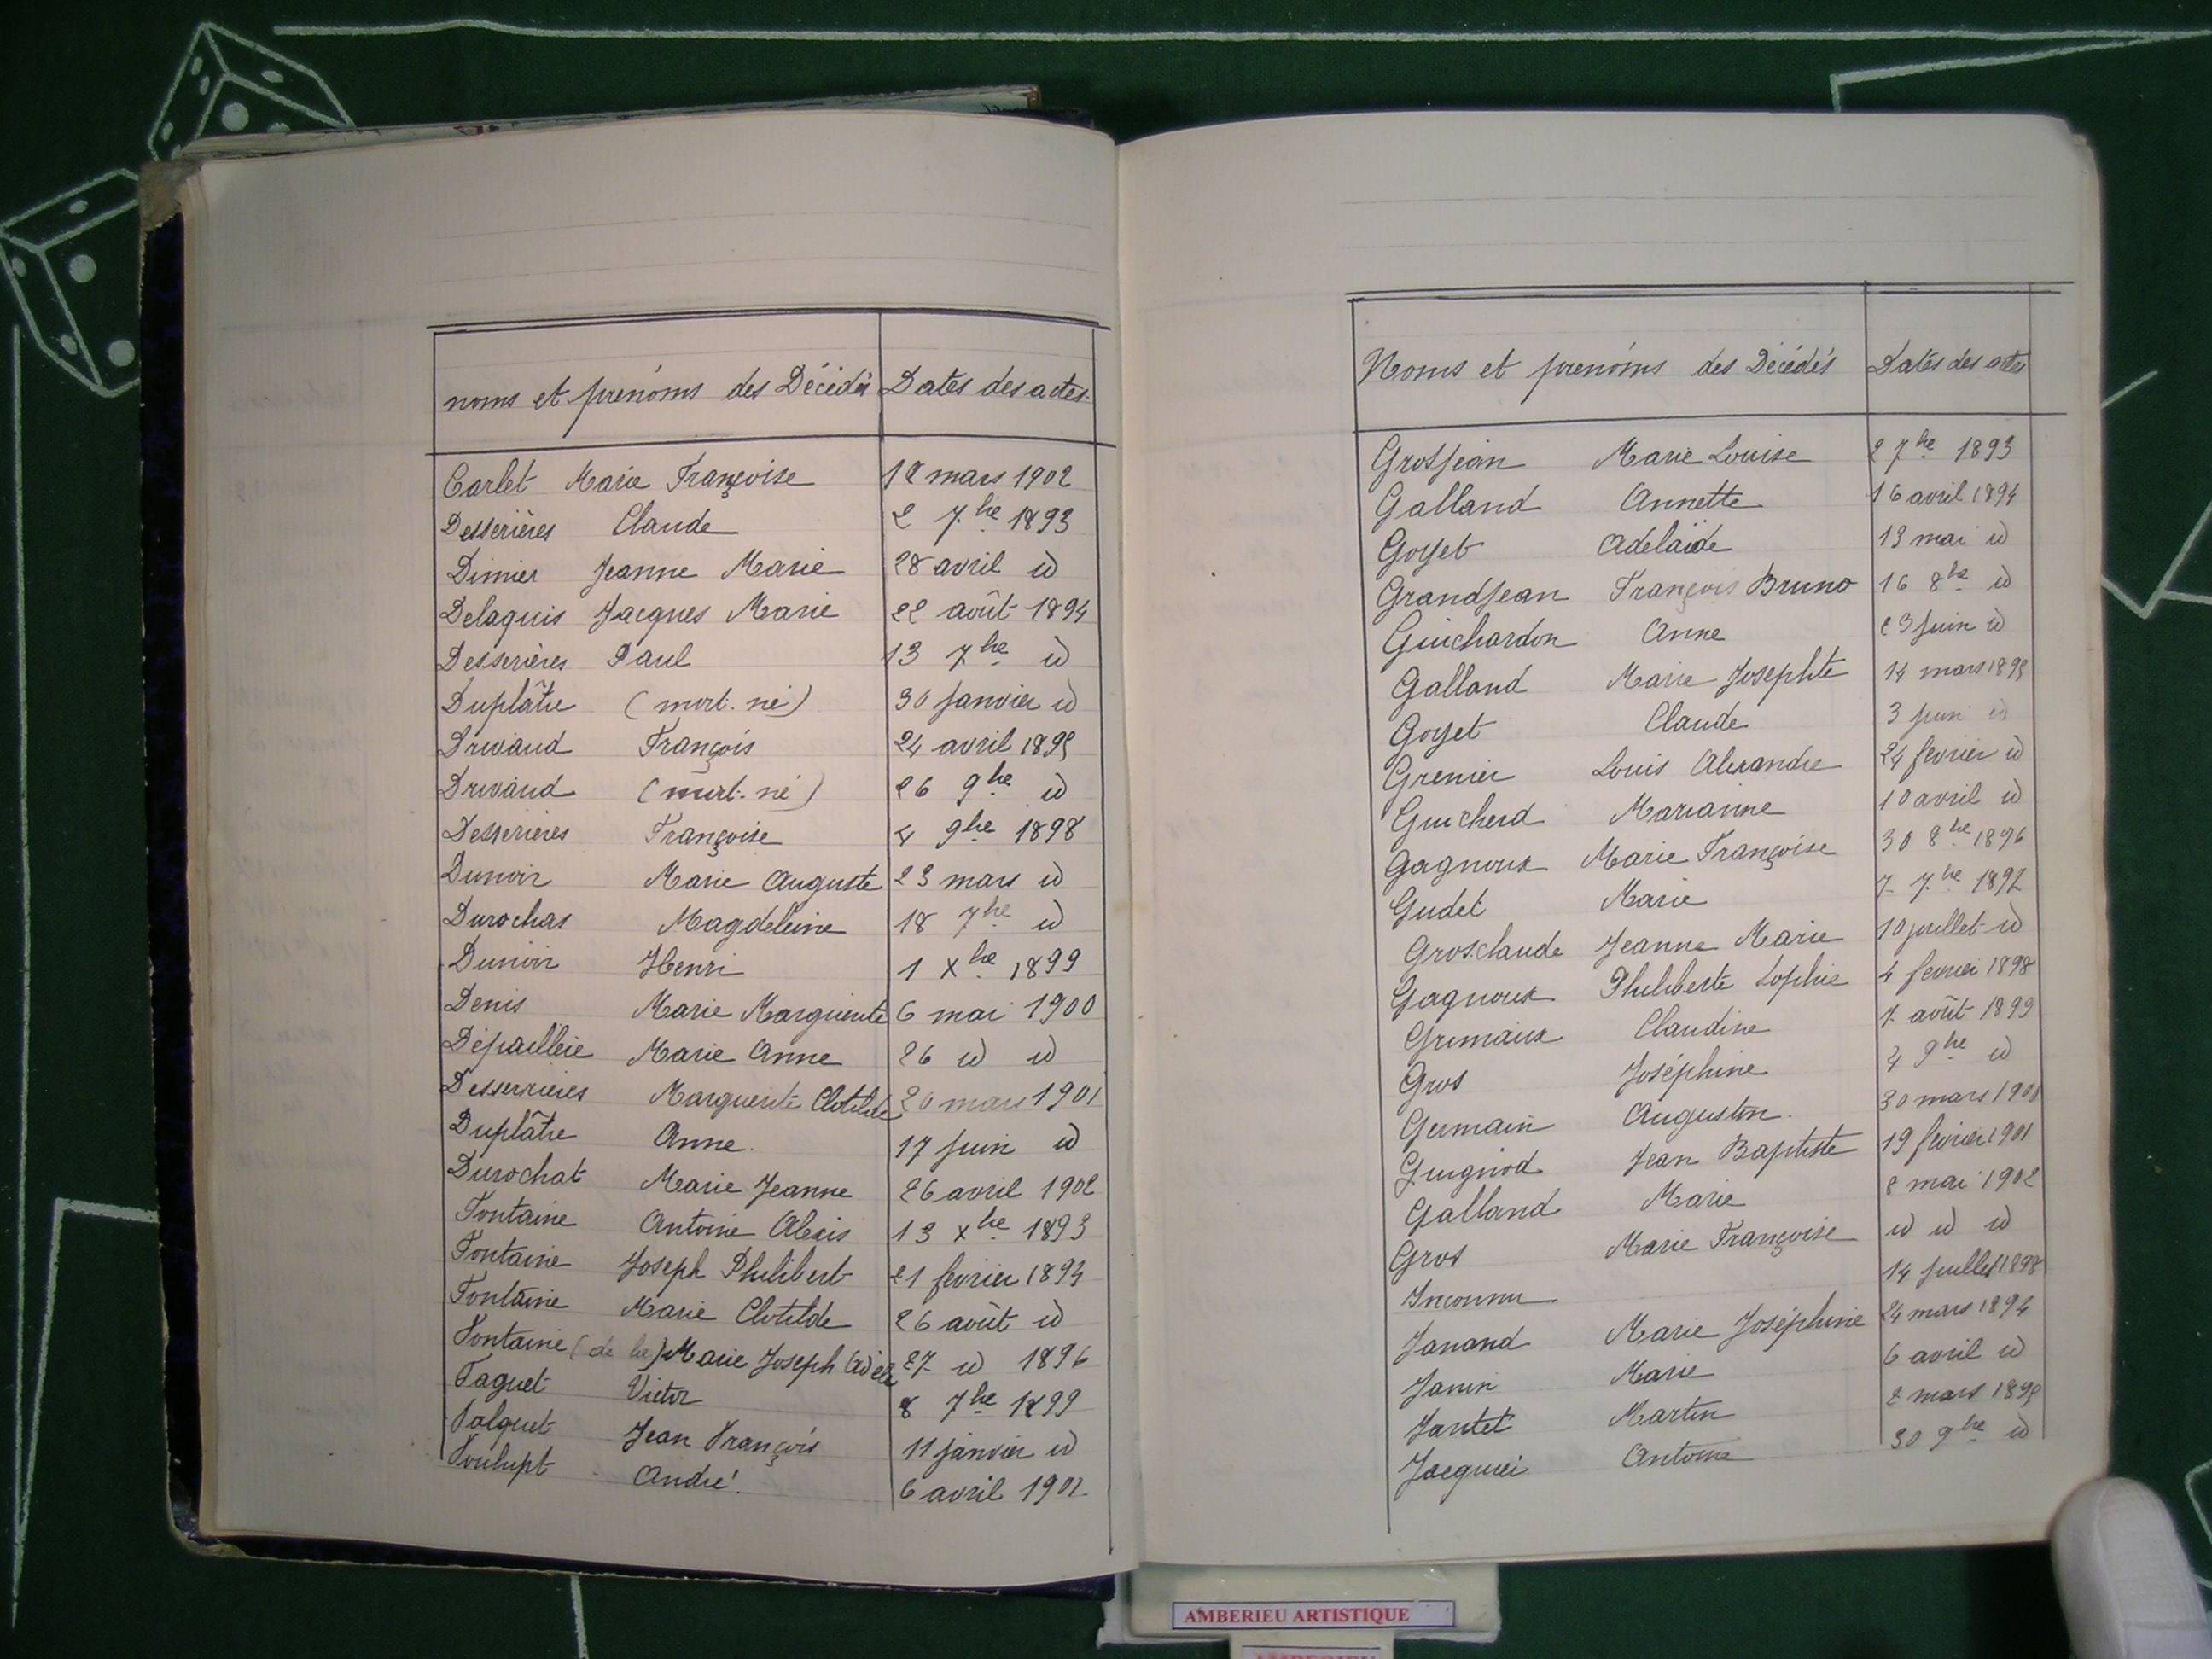 noms et prénoms des Décédés Dates des actes.
Carlet Marie Françoise 18 mars 1902
Desserières Claude 2 7bre 1893
Dimier Jeanne Marie 28 avril id
Delaquis Jacques Marie 22 août 1894
Desserières Paul 13 7bre id
Duplâtre (mort-né) 30 janvier id
Drivaud François 24 avril 1895
Drivaud (mort-né) 26 9bre id
Desserières Françoise 4 9bre 1898
Dunoir Marie Auguste 23 mars id
Durochas Magdeleine 18 7bre id
Dunoir Henri 1 Xbre 1899
Denis Marie Marguerite 6 mai 1900
Dépaillie Marie Anne 26 id id
Desserrières Marguerite Clotilde 20 mars 1901
Duplâtre Anne. 17 juin id
Durochat Marie Jeanne 26 avril 1902
Fontaine Antoine Alexis 13 Xbre 1893
Fontaine Joseph Philibert 21 février 1894
Fontaine Marie Clotilde 26 août id
Fontaine (de la) Marie Joseph 27 id 1896
Faguet Victor 8 7bre 1899
Falquet Jean François 11 janvier id
André. 6 avril 1902
Noms et prénoms des Décédés Dates des actes
Grosjean Marie Louise 2 7bre 1893
Galland Annette 16 avril 1894
Goyet Adelaïde 13 mai id
Grandjean François Bruno 16 8bre id
Guichardon Anne 23 juin id
Galland Marie Josephte 14 mars 1895
Goyet Claude 3 juin id
Grenier Louis Alexandre 24 fevrier id
Guicherd Marianne 10 avril id
Gagnoux Marie Françoise 30 8bre 1896
Gudet Marie 7 7bre 1897
Grosclaude Jeanne Marie 10 juillet id
Gagnoux Philiberte Sophie 4 fevrier 1898
Grimaux Claudine 7 août 1899
Gros Joséphine 4 9bre id
Germain Augustin. 30 mars
Guigniod Jean Baptiste 19 février 1901
Galland Marie 8 mai 1902
Gros Marie Françoise id id id
Inconnu 14 juillet 1898
Janand Marie Joséphine 24 mars 1894
Janin Marie 6 avril id
Jantet Martin 2 mars 1895
Jacquier Antoine 30 9bre id
AMBERIEU ARTISTIQUE
AMBERIEU